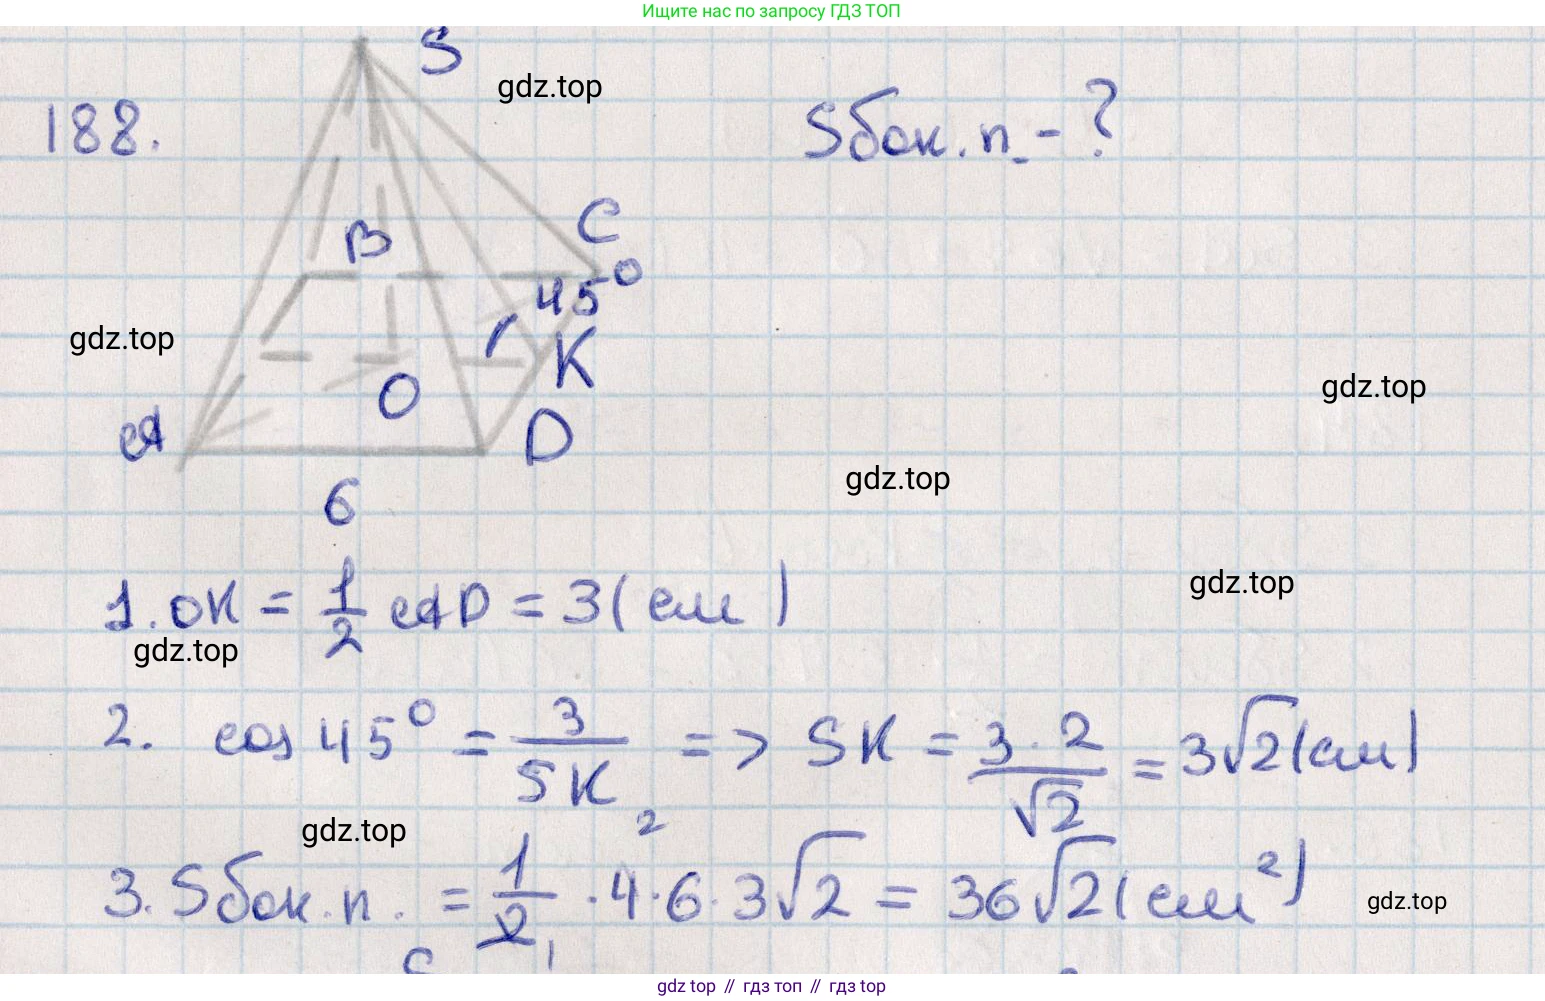 Ищите нас по запросу ГДЗ ТОП
S
gdz.top
188.
Sбок.п. - ?
C
B
45°
gdz.top
K
O
gdz.top
A
D
gdz.top
6
gdz.top
1. OK = 1/2 AD = 3 (см)
gdz.top
2. cos 45° = 3/SK => SK = 3·2/√2 = 3√2 (см)
gdz.top
3. Sбок.п. = 1/2 · 4 · 6 · 3√2 = 36√2 (см²)
2
1
gdz.top
gdz.top // гдз топ // гдз top